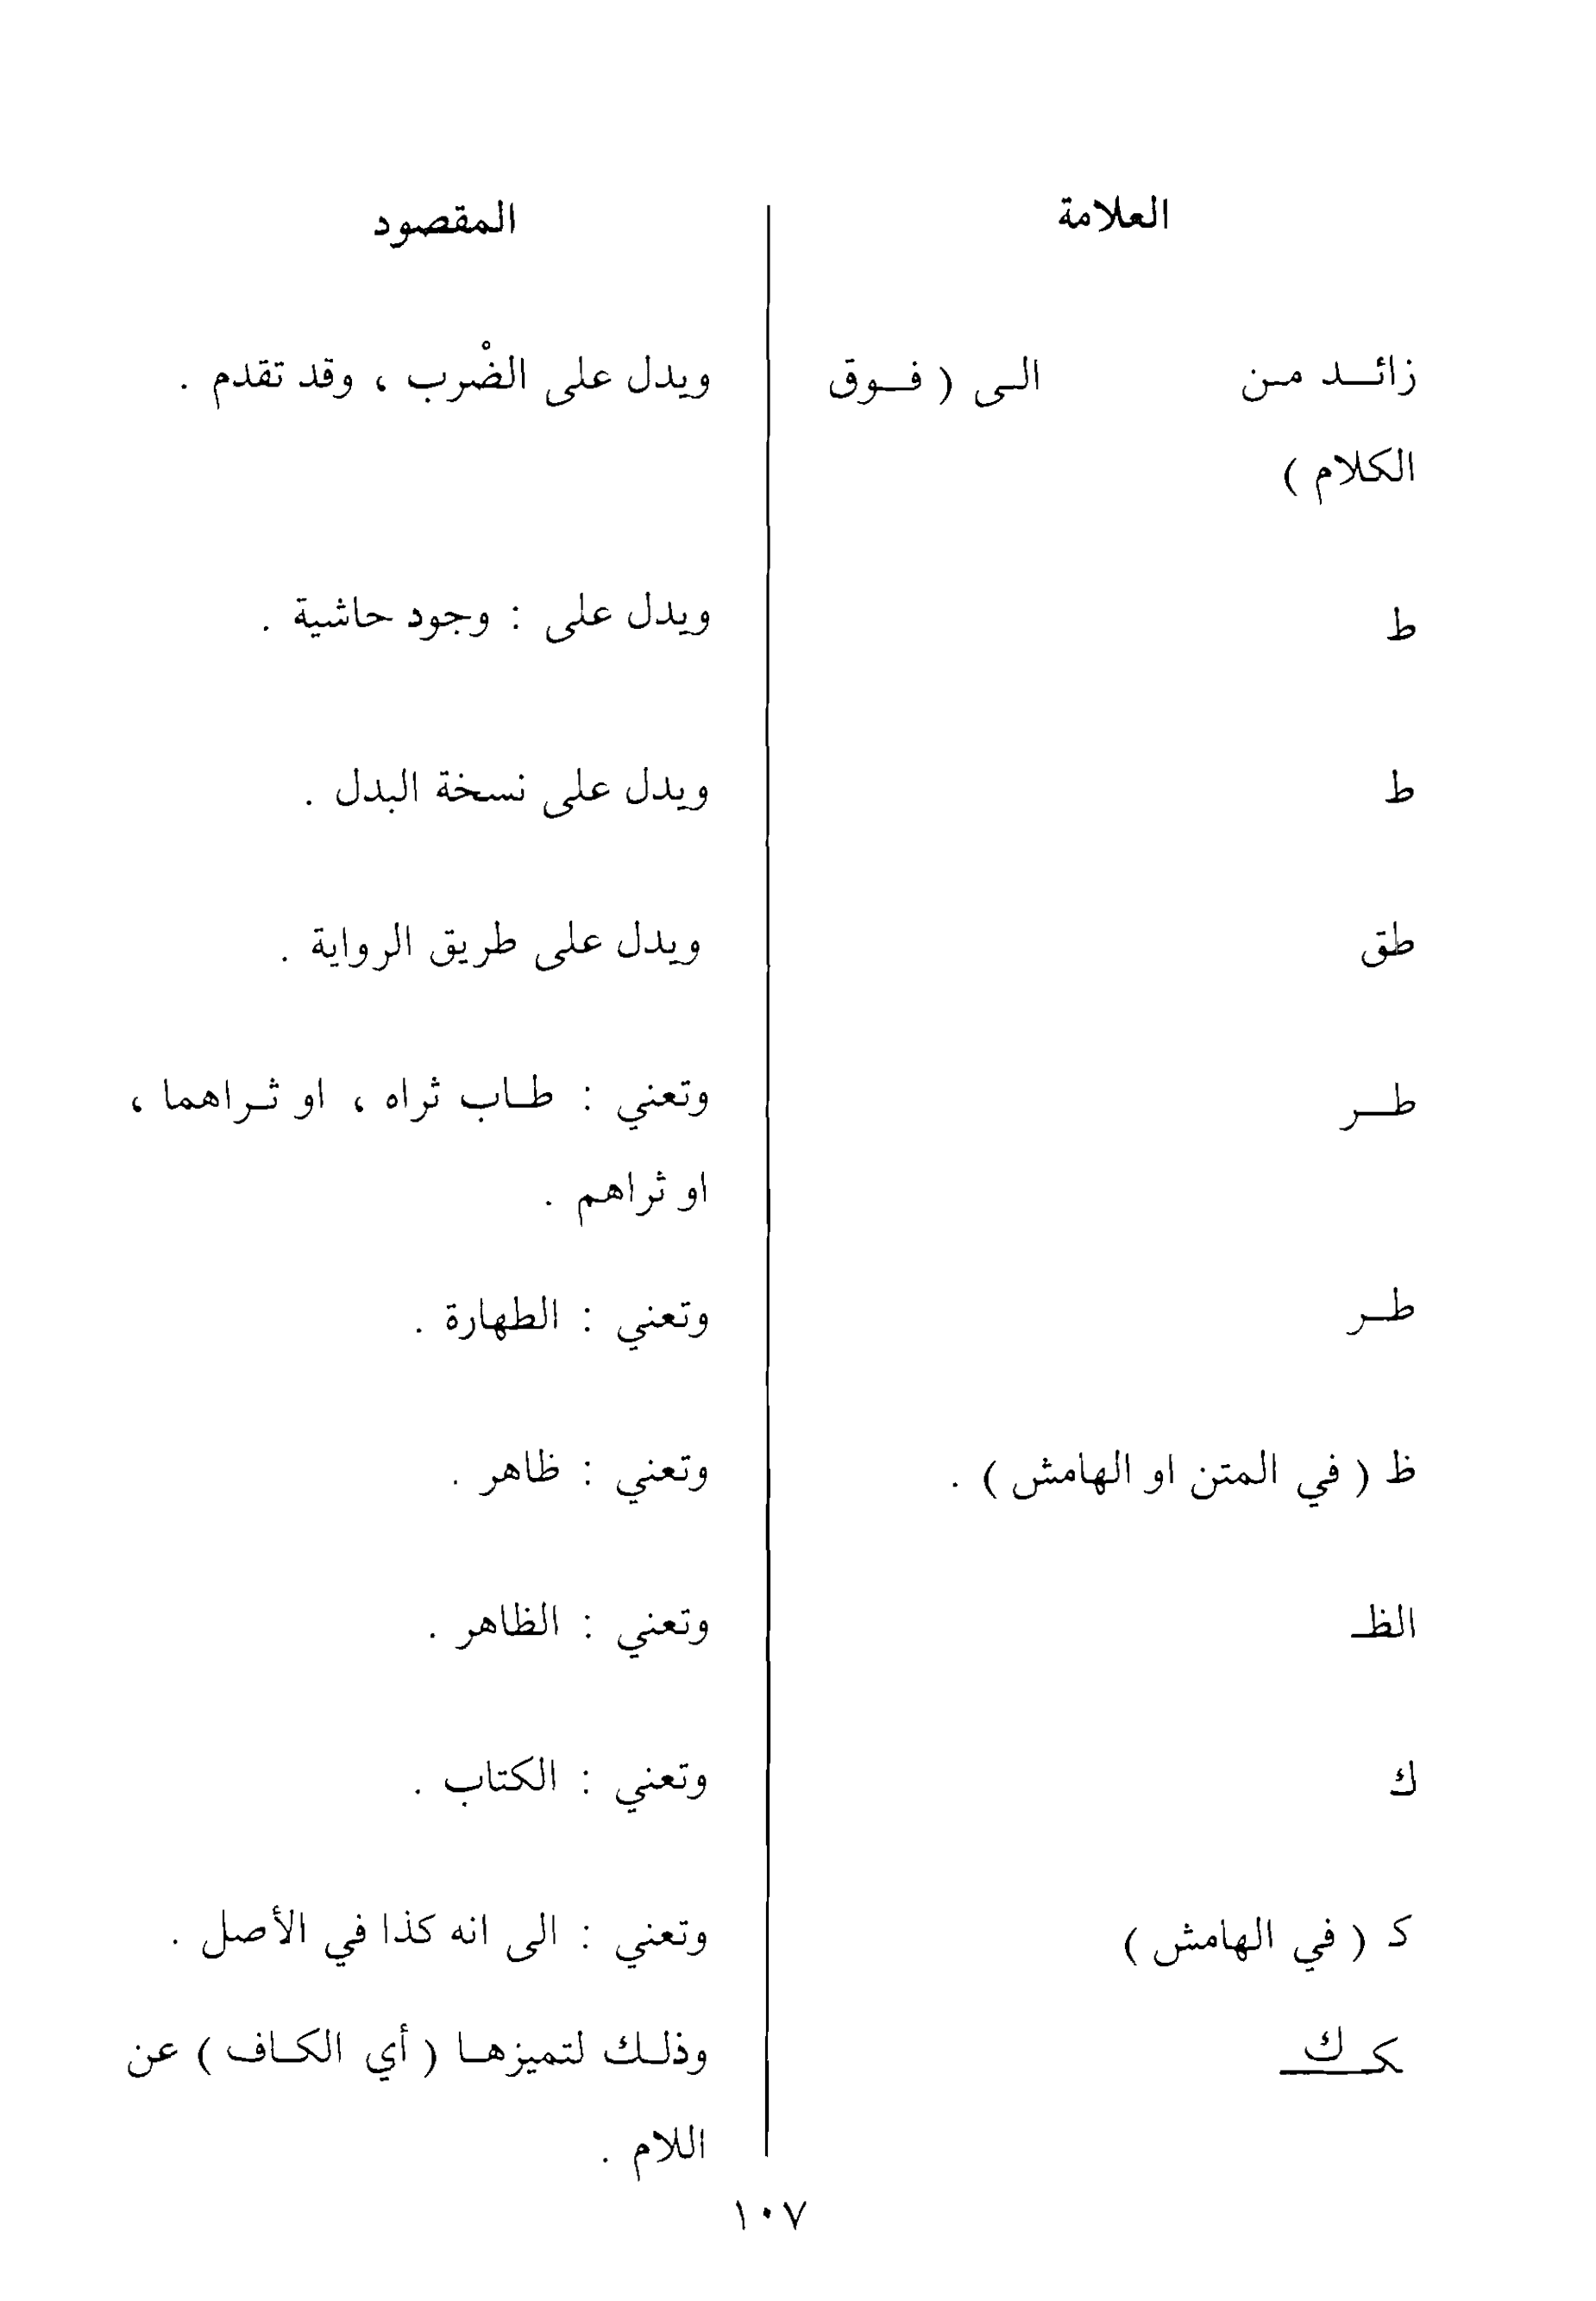 العلامة المقصود
زائـد مـن الـى ( فـوق ويدل على الضْرب ، وقد تقدم .
الكلام )
ط ويدل على : وجود حاشية .
ط ويدل على نسخة البدل .
طق ويدل على طريق الرواية .
طـر وتعني : طـاب ثراه ، او ثـراهما ،
او ثراهم .
طـر وتعني : الطهارة .
ظ ( في المتن او الهامش ) . وتعني : ظاهر .
الظـ وتعني : الظاهر .
ك وتعني : الكتاب .
كـ ( في الهامش ) وتعني : الى انه كذا في الأصل .
كـك وذلـك لتميزهـا ( أي الكـاف ) عن
اللام .
١٠٧